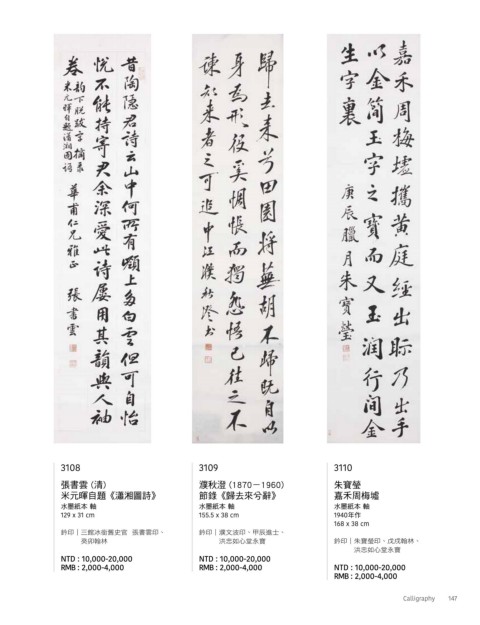 昔陶隱君詩云山中何所有嶺上多白雲但可自怡
悅不能持寄君余深愛此詩屢用其韻與人袖
卷
韵下脫數字摘录
米元暉自題瀟湘圖語
華甫仁兄雅正
張書雲
歸去來兮田園將蕪胡不歸既自以
身為形役奚惆悵而獨悲悟已往之不
諫知來者之可追
中江濮秋澄書
嘉禾周梅墟攜黃庭經出眎乃出手
以金簡玉字之寶而又玉潤行間金
生字裏
庚辰臘月朱寶瑩
3108
張書雲 (清)
米元暉自題《瀟湘圖詩》
水墨紙本 軸
129 x 31 cm
鈐印｜三館冰銜舊史官 張書雲印、
癸卯翰林
NTD : 10,000-20,000
RMB : 2,000-4,000
3109
濮秋澄 (1870－1960)
節錄《歸去來兮辭》
水墨紙本 軸
155.5 x 38 cm
鈐印｜濮文波印、甲辰進士、
洪忠如心堂永寶
NTD : 10,000-20,000
RMB : 2,000-4,000
3110
朱寶瑩
嘉禾周梅墟
水墨紙本 軸
1940年作
168 x 38 cm
鈐印｜朱寶瑩印、戊戌翰林、
洪忠如心堂永寶
NTD : 10,000-20,000
RMB : 2,000-4,000
Calligraphy 147